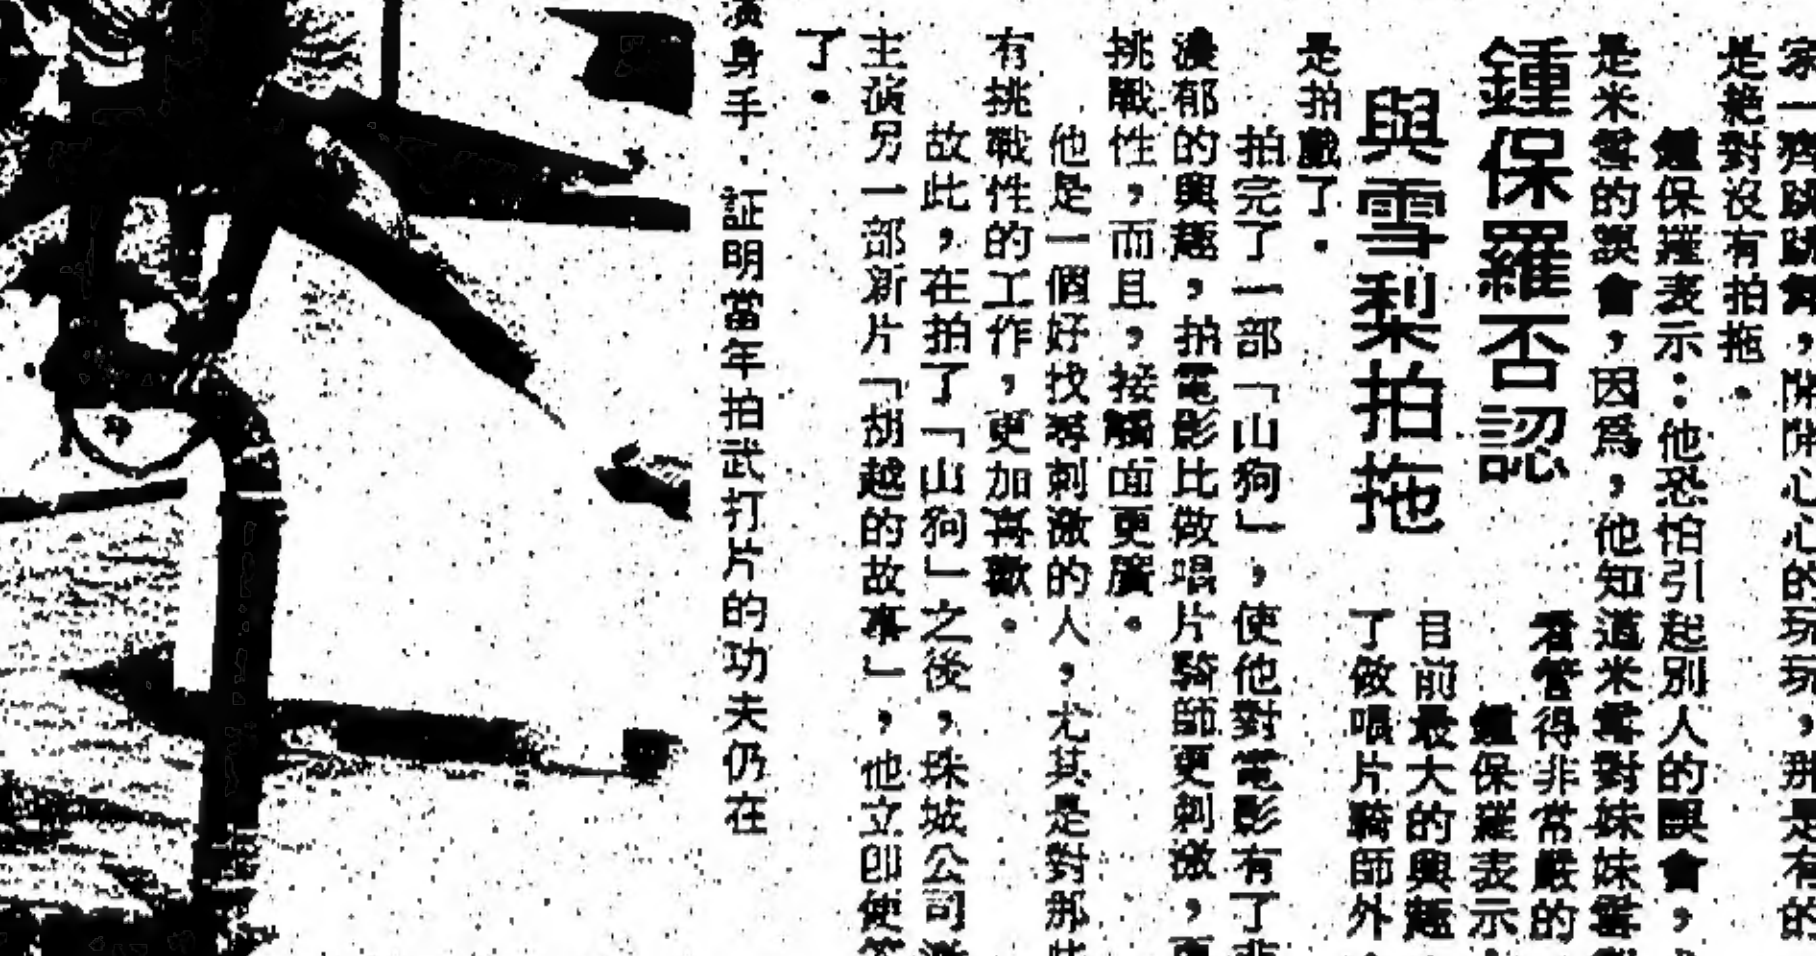 家一齊跳跳舞，開開心心的玩玩，那是有的
是絕對沒有拍拖．
鍾保羅表示：他恐怕引起別人的誤會，
是米雪的誤會，因爲，他知道米雪對妹妹雪
鍾保羅否認
與雪梨拍拖
看管得非常嚴的
鍾保羅表示
目前最大的興趣
了做唱片騎師外
是拍戲了．
拍完了一部「山狗」，使他對電影有了非
濃郁的興趣，拍電影比做唱片騎師更刺激，更
挑戰性，而且，接觸面更廣．
他是一個好找尋刺激的人，尤其是對那些
有挑戰性的工作，更加喜歡．
故此，在拍了「山狗」之後，珠城公司
主演另一部新片「胡越的故事」，他立即便答
了．
演身手．証明當年拍武打片的功夫仍在